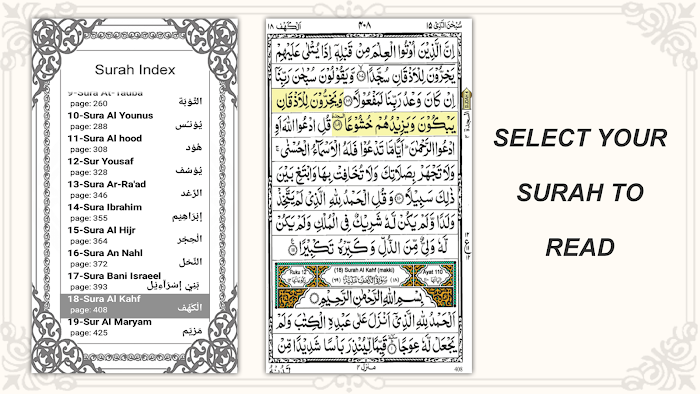 Surah Index
9-Sura At-Tauba
page: 260
التَّوْبَة
10-Sura Al Younus
page: 288
يُوْنـُس
11-Sura Al hood
page: 308
هُوْد
12-Sur Yousaf
page: 328
يُوْسُف
13-Sura Ar-Ra'ad
page: 346
الرَّعْد
14-Sura Ibrahim
page: 355
إِبْرَاهِيْم
15-Sura Al Hijr
page: 364
الْحِجْر
16-Sura An Nahl
page: 372
النَّحْل
17-Sura Bani Israeel
page: 393
بَنِيْ إِسْرَاءِيْل
18-Sura Al Kahf
page: 408
الْكَهْف
19-Sur Al Maryam
page: 425
مَرْيَم
سُبْحٰنَ الَّذِیْ ١٥
٤٠٨
اَلْكَهْف ١٨
اِنَّ الَّذِیْنَ اُوْتُوا الْعِلْمَ مِنْ قَبْلِهٖۤ اِذَا یُتْلٰى عَلَیْهِمْ
یَخِرُّوْنَ لِلْاَذْقَانِ سُجَّدًا وَّ یَقُوْلُوْنَ سُبْحٰنَ رَبِّنَاۤ
اِنْ كَانَ وَعْدُ رَبِّنَا لَمَفْعُوْلًا وَ یَخِرُّوْنَ لِلْاَذْقَانِ
یَبْكُوْنَ وَ یَزِیْدُهُمْ خُشُوْعًا قُلِ ادْعُوا اللّٰهَ اَوِ
ادْعُوا الرَّحْمٰنَ اَیًّا مَّا تَدْعُوْا فَلَهُ الْاَسْمَآءُ الْحُسْنٰى
وَ لَا تَجْهَرْ بِصَلَاتِكَ وَ لَا تُخَافِتْ بِهَا وَ ابْتَغِ بَیْنَ
ذٰلِكَ سَبِیْلًا وَ قُلِ الْحَمْدُ لِلّٰهِ الَّذِیْ لَمْ یَتَّخِذْ
وَلَدًا وَّ لَمْ یَكُنْ لَّهٗ شَرِیْكٌ فِی الْمُلْكِ وَ لَمْ یَكُنْ
لَّهٗ وَلِیٌّ مِّنَ الذُّلِّ وَ كَبِّرْهُ تَكْبِیْرًا
Ruku 12 (18) Surah Al Kahf (makki) Ayat 110
بِسْمِ اللّٰهِ الرَّحْمٰنِ الرَّحِیْمِ
اَلْحَمْدُ لِلّٰهِ الَّذِیْۤ اَنْزَلَ عَلٰى عَبْدِهِ الْكِتٰبَ وَ لَمْ
یَجْعَلْ لَّهٗ عِوَجًا قَیِّمًا لِّیُنْذِرَ بَاْسًا شَدِیْدًا مِّنْ
منزل ٤
408
SELECT YOUR
SURAH TO
READ